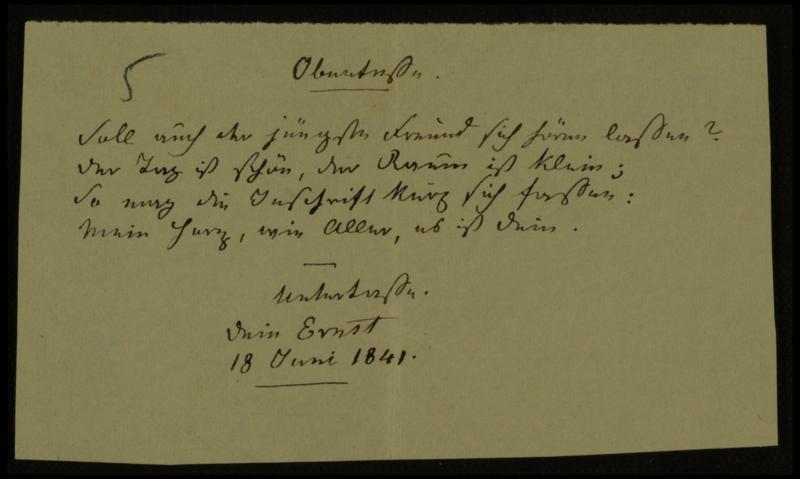 5
Obertasse.
Soll auch der jüngste Freund sich hören lassen?
Der Tag ist schön, der Raum ist klein;
So mag die Inschrift kurz sich fassen:
Mein Herz, wie Aller, es ist Dein.
Untertasse.
Dein Ernst
18 Juni 1841.